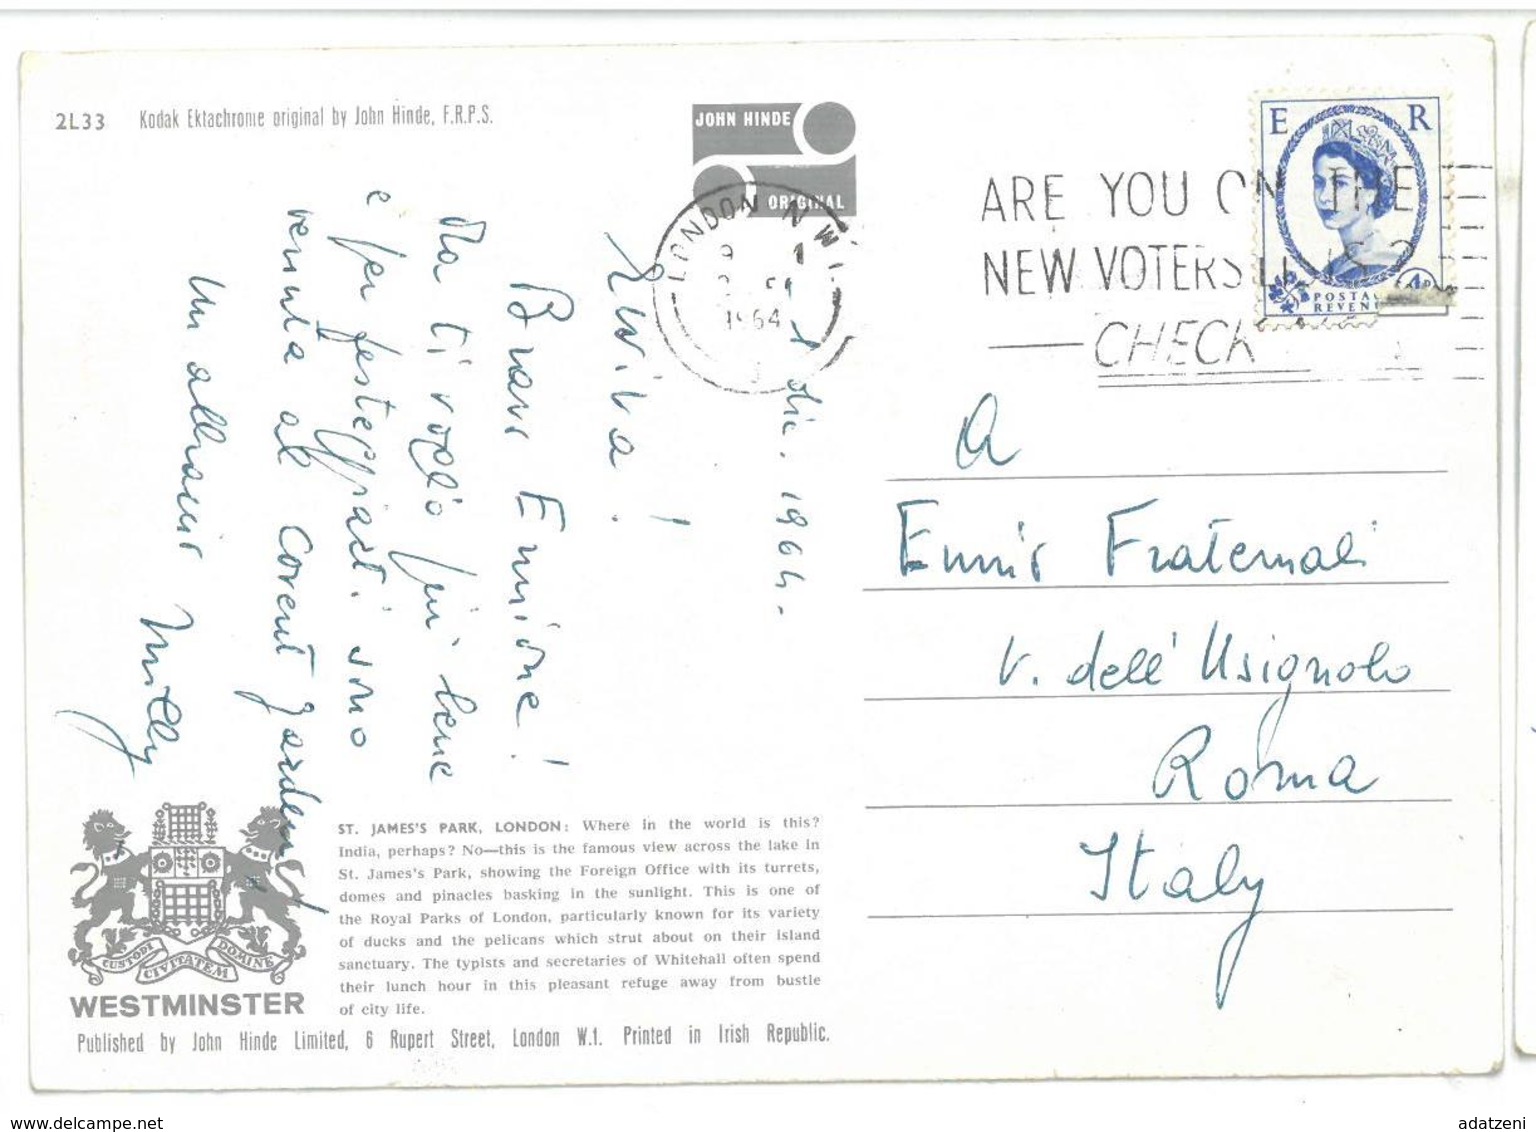 2L33 Kodak Ektachrome original by John Hinde, F.R.P.S.
JOHN HINDE
ORIGINAL
LONDON N.W.1.
1964
ARE YOU ON THE
NEW VOTERS LISTS?
CHECK
E R
POSTAGE
REVENUE
4D
Dic. 1964.
Evviva!
Bravo Ennione!
Ma ti voglio più bene
e per festeggiarti sono
venuta al Covent Garden!
Un abbraccio
Milly
A
Ennio Fraternali
V. dell' Usignolo
Roma
Italy
CUSTODI CIVITATEM DOMINE
WESTMINSTER
ST. JAMES'S PARK, LONDON: Where in the world is this?
India, perhaps? No—this is the famous view across the lake in
St. James's Park, showing the Foreign Office with its turrets,
domes and pinacles basking in the sunlight. This is one of
the Royal Parks of London, particularly known for its variety
of ducks and the pelicans which strut about on their island
sanctuary. The typists and secretaries of Whitehall often spend
their lunch hour in this pleasant refuge away from bustle
of city life.
Published by John Hinde Limited, 6 Rupert Street, London W.1. Printed in Irish Republic.
www.delcampe.net
adatzeni